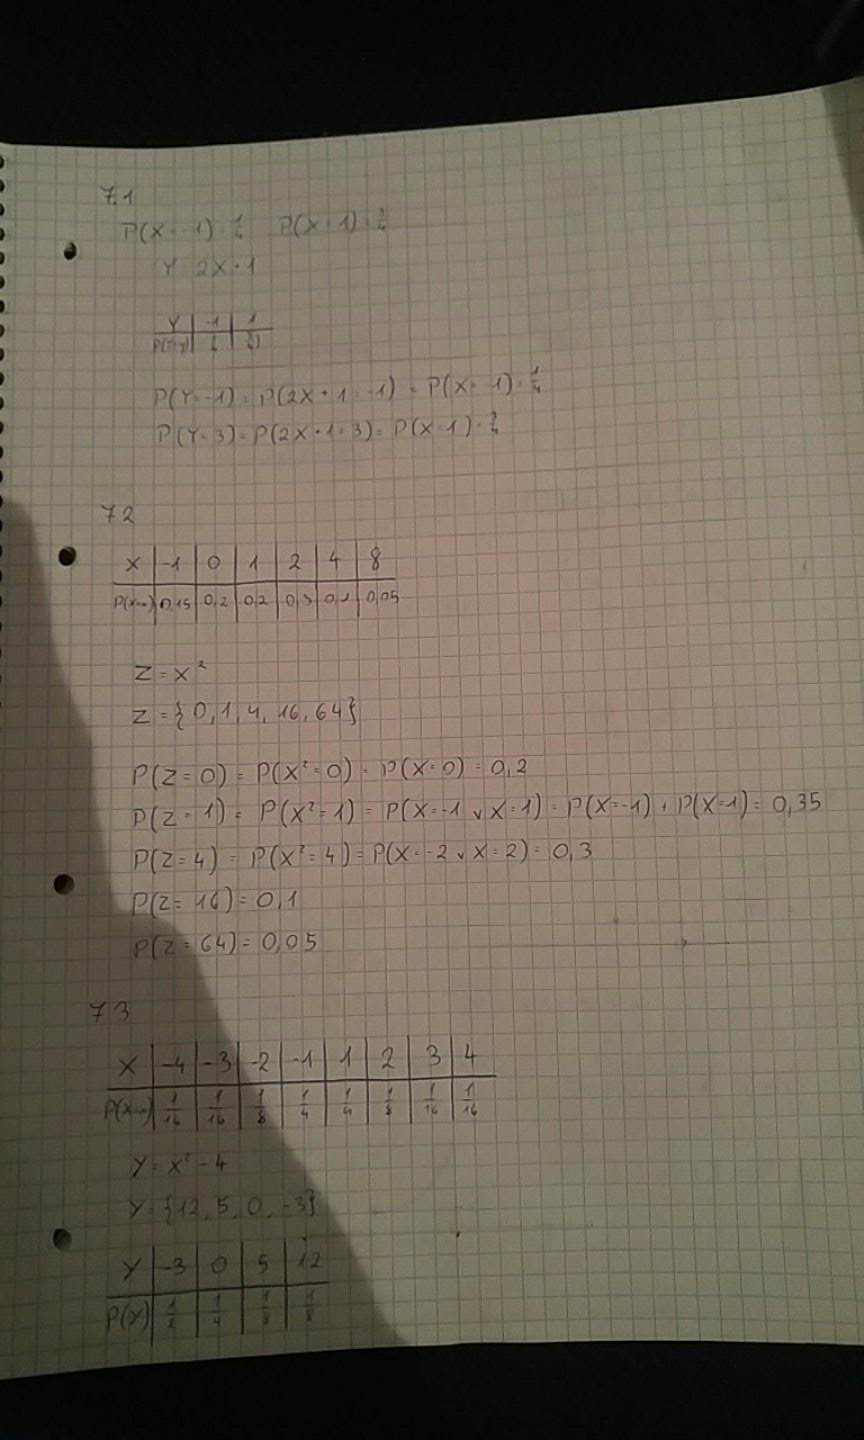 7.1
P(X=-1)=1/4 P(X=1)=3/4
Y=2X+1
Y | -1 |
P(Y=y) | |
P(Y=-1)=P(2X+1=-1)=P(X=-1)=1/4
P(Y=3)=P(2X+1=3)=P(X=1)=3/4
7.2
X | -1 | 0 | 1 | 2 | 4 | 8
P(X=x) | 0,15 | 0,2 | 0,2 | 0,3 | 0,1 | 0,05
Z=X²
Z={0,1,4,16,64}
P(Z=0)=P(X²=0)=P(X=0)=0,2
P(Z=1)=P(X²=1)=P(X=-1 ∨ X=1)=P(X=-1)+P(X=1)=0,35
P(Z=4)=P(X²=4)=P(X=-2 ∨ X=2)=0,3
P(Z=16)=0,1
P(Z=64)=0,05
7.3
X | -4 | -3 | -2 | -1 | 1 | 2 | 3 | 4
P(X=x) | 1/16 | 1/16 | 1/8 | 1/4 | 1/4 | 1/8 | 1/16 | 1/16
Y=X²-4
Y={12,5,0,-3}
Y | -3 | 0 | 5 | 12
P(Y) | 1/2 | 1/4 | 1/8 | 1/8